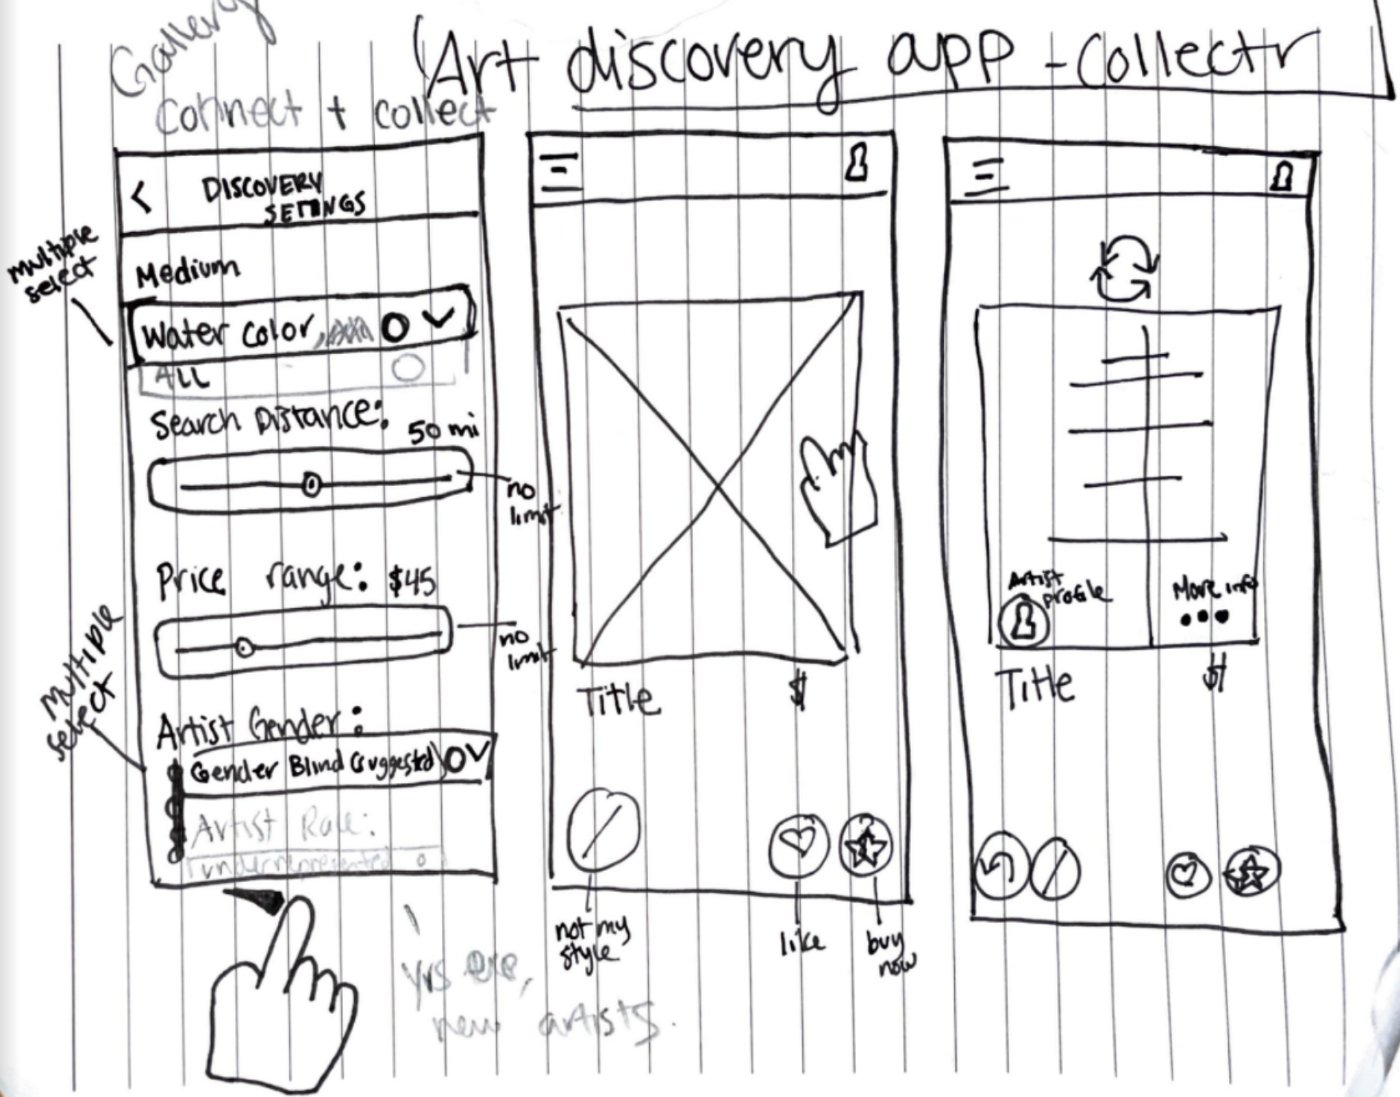 Gallery
Art discovery app - Collectr
Connect + collect
<
DISCOVERY
SETTINGS
multiple
select
Medium
Water color,
ALL
Search Distance:
50 mi
no
limit
Price range: $45
no
limit
multiple
select
Artist Gender:
Gender Blind (suggested)
Artist Race:
underrepresented
yrs exp,
new artists.
Title
$
not my
style
like
buy
now
Artist
profile
More info
Title
$